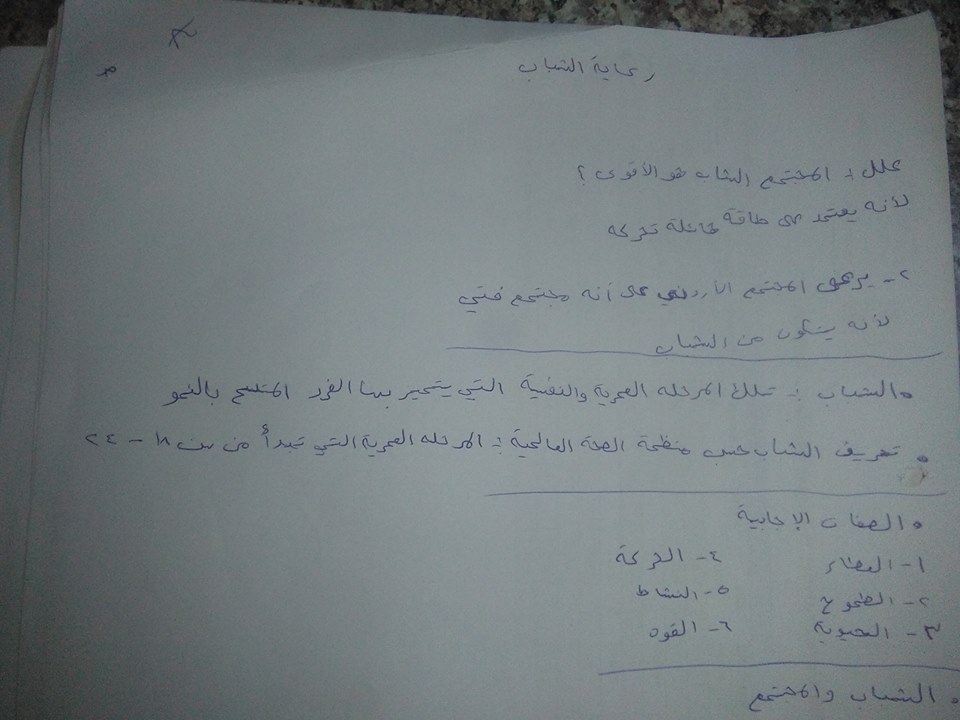 رعاية الشباب
علل : المجتمع الشاب هو الأقوى ؟
لأنه يعتمد على طاقة هائلة تحركه
٢- يرهى المجتمع الأردني على أنه مجتمع فتي
لأنه يتكون من الشباب
• الشباب : تلك المرحله العمرية والنفسية التي يتحير بها الفرد المتسم بالنمو
• تعريف الشباب حسب منظمة الصحة العالمية : المرحله العمرية التي تبدأ من سن ١٨ - ٢٤
• الصفات الإجابية
١- العطاء ٤- السرعة
٢- الطموح ٥- النشاط
٣- الحيوية ٦- القوه
• الشباب والمجتمع